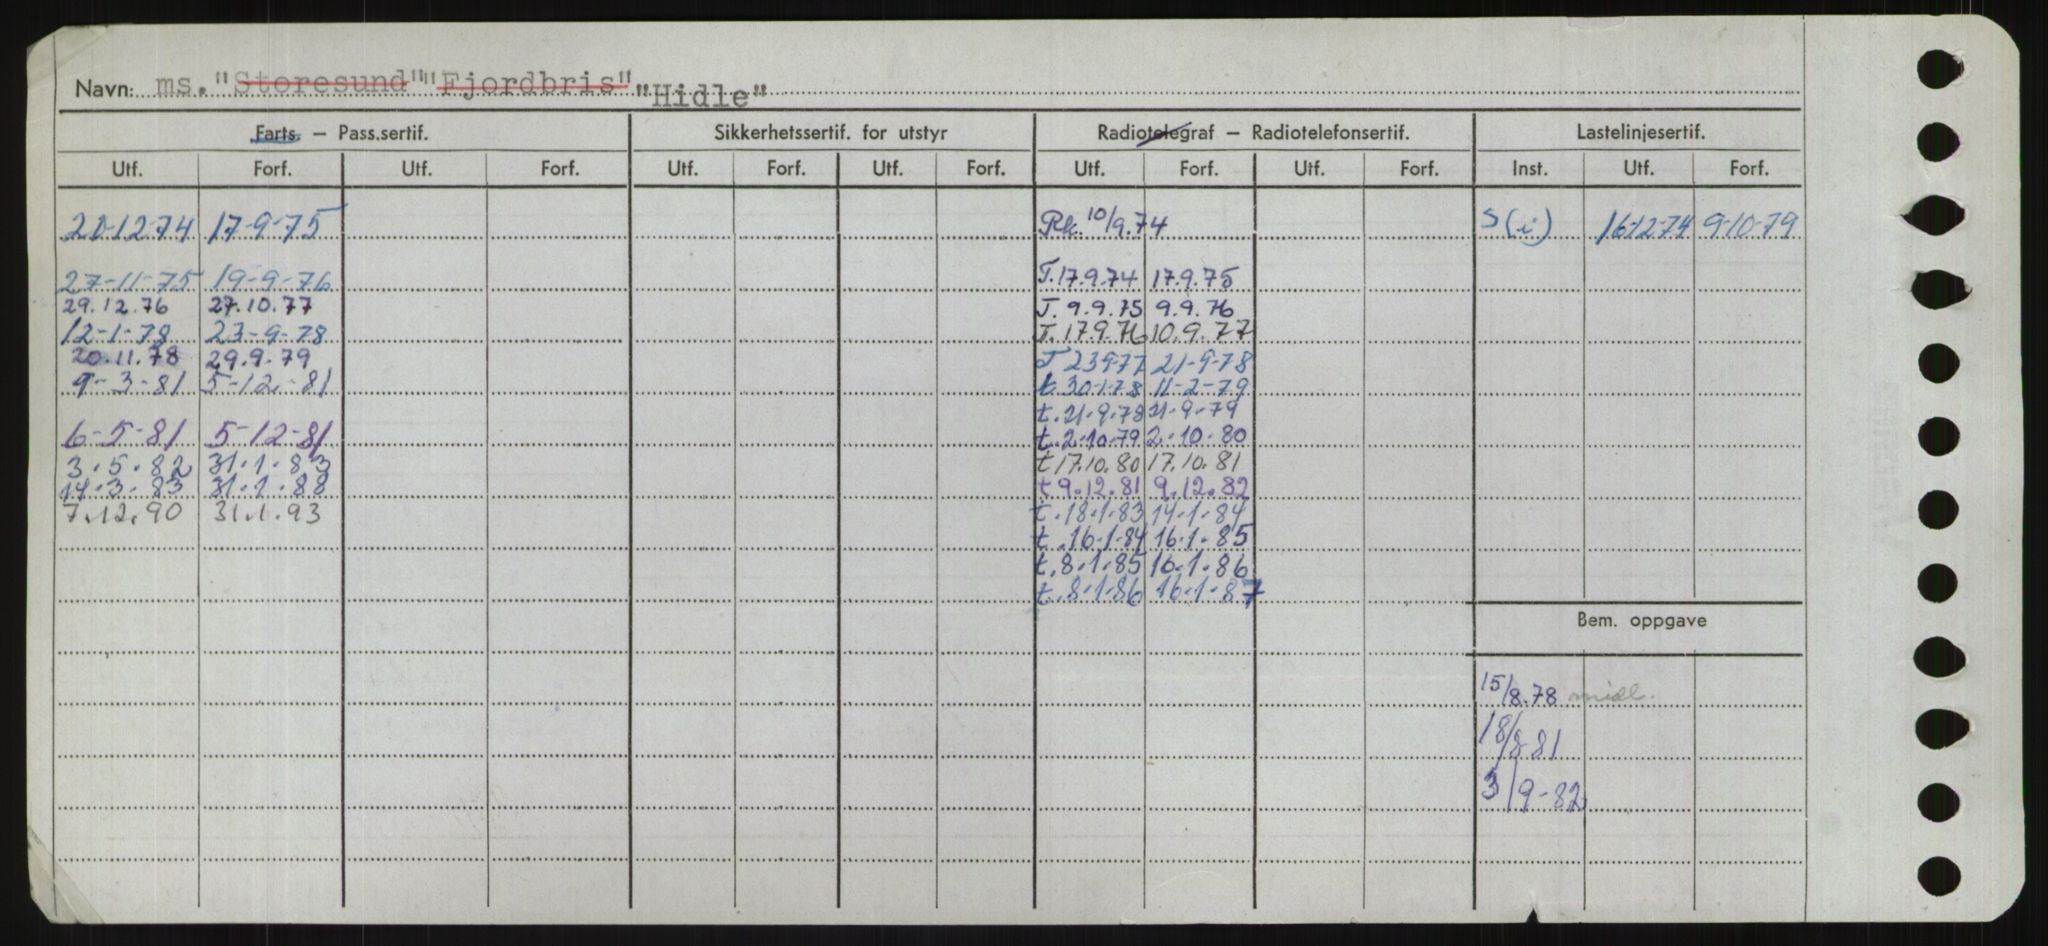 Navn: ms. "Storesund" "Fjordbris" "Hidle"
Farts. — Pass.sertif. Sikkerhetssertif. for utstyr Radiotelegraf — Radiotelefonsertif. Lastelinjesertif.
Utf. Forf. Utf. Forf. Utf. Forf. Utf. Forf. Utf. Forf. Utf. Forf. Inst. Utf. Forf.
20-12-74 17-9-75 Rk. 10/9.74 S(i) 16-12-74 9-10-79
27-11-75 19-9-76 T. 17.9.74 17.9.75
29.12.76 27.10.77 T. 9.9.75 9.9.76
12-1-78 23-9-78 T. 17.9.76 10.9.77
20.11.78 29.9.79 T 23-9-77 21-9-78
9-3-81 5-12-81 t. 30-1-78 11-2-79
t. 21.9.78 21-9-79
6-5-81 5-12-81 t. 2.10.79 2.10.80
3.5.82 31.1.83 t 17.10.80 17.10.81
14.3.83 31.1.88 t 9.12.81 9.12.82
7.12.90 31.1.93 t. 18.1.83 14.1.84
t. 16.1.84 16.1.85
t. 8.1.85 16.1.86
t. 8.1.86 16.1.87
Bem. oppgave
15/8.78 midl.
18/8-81
3/9-82